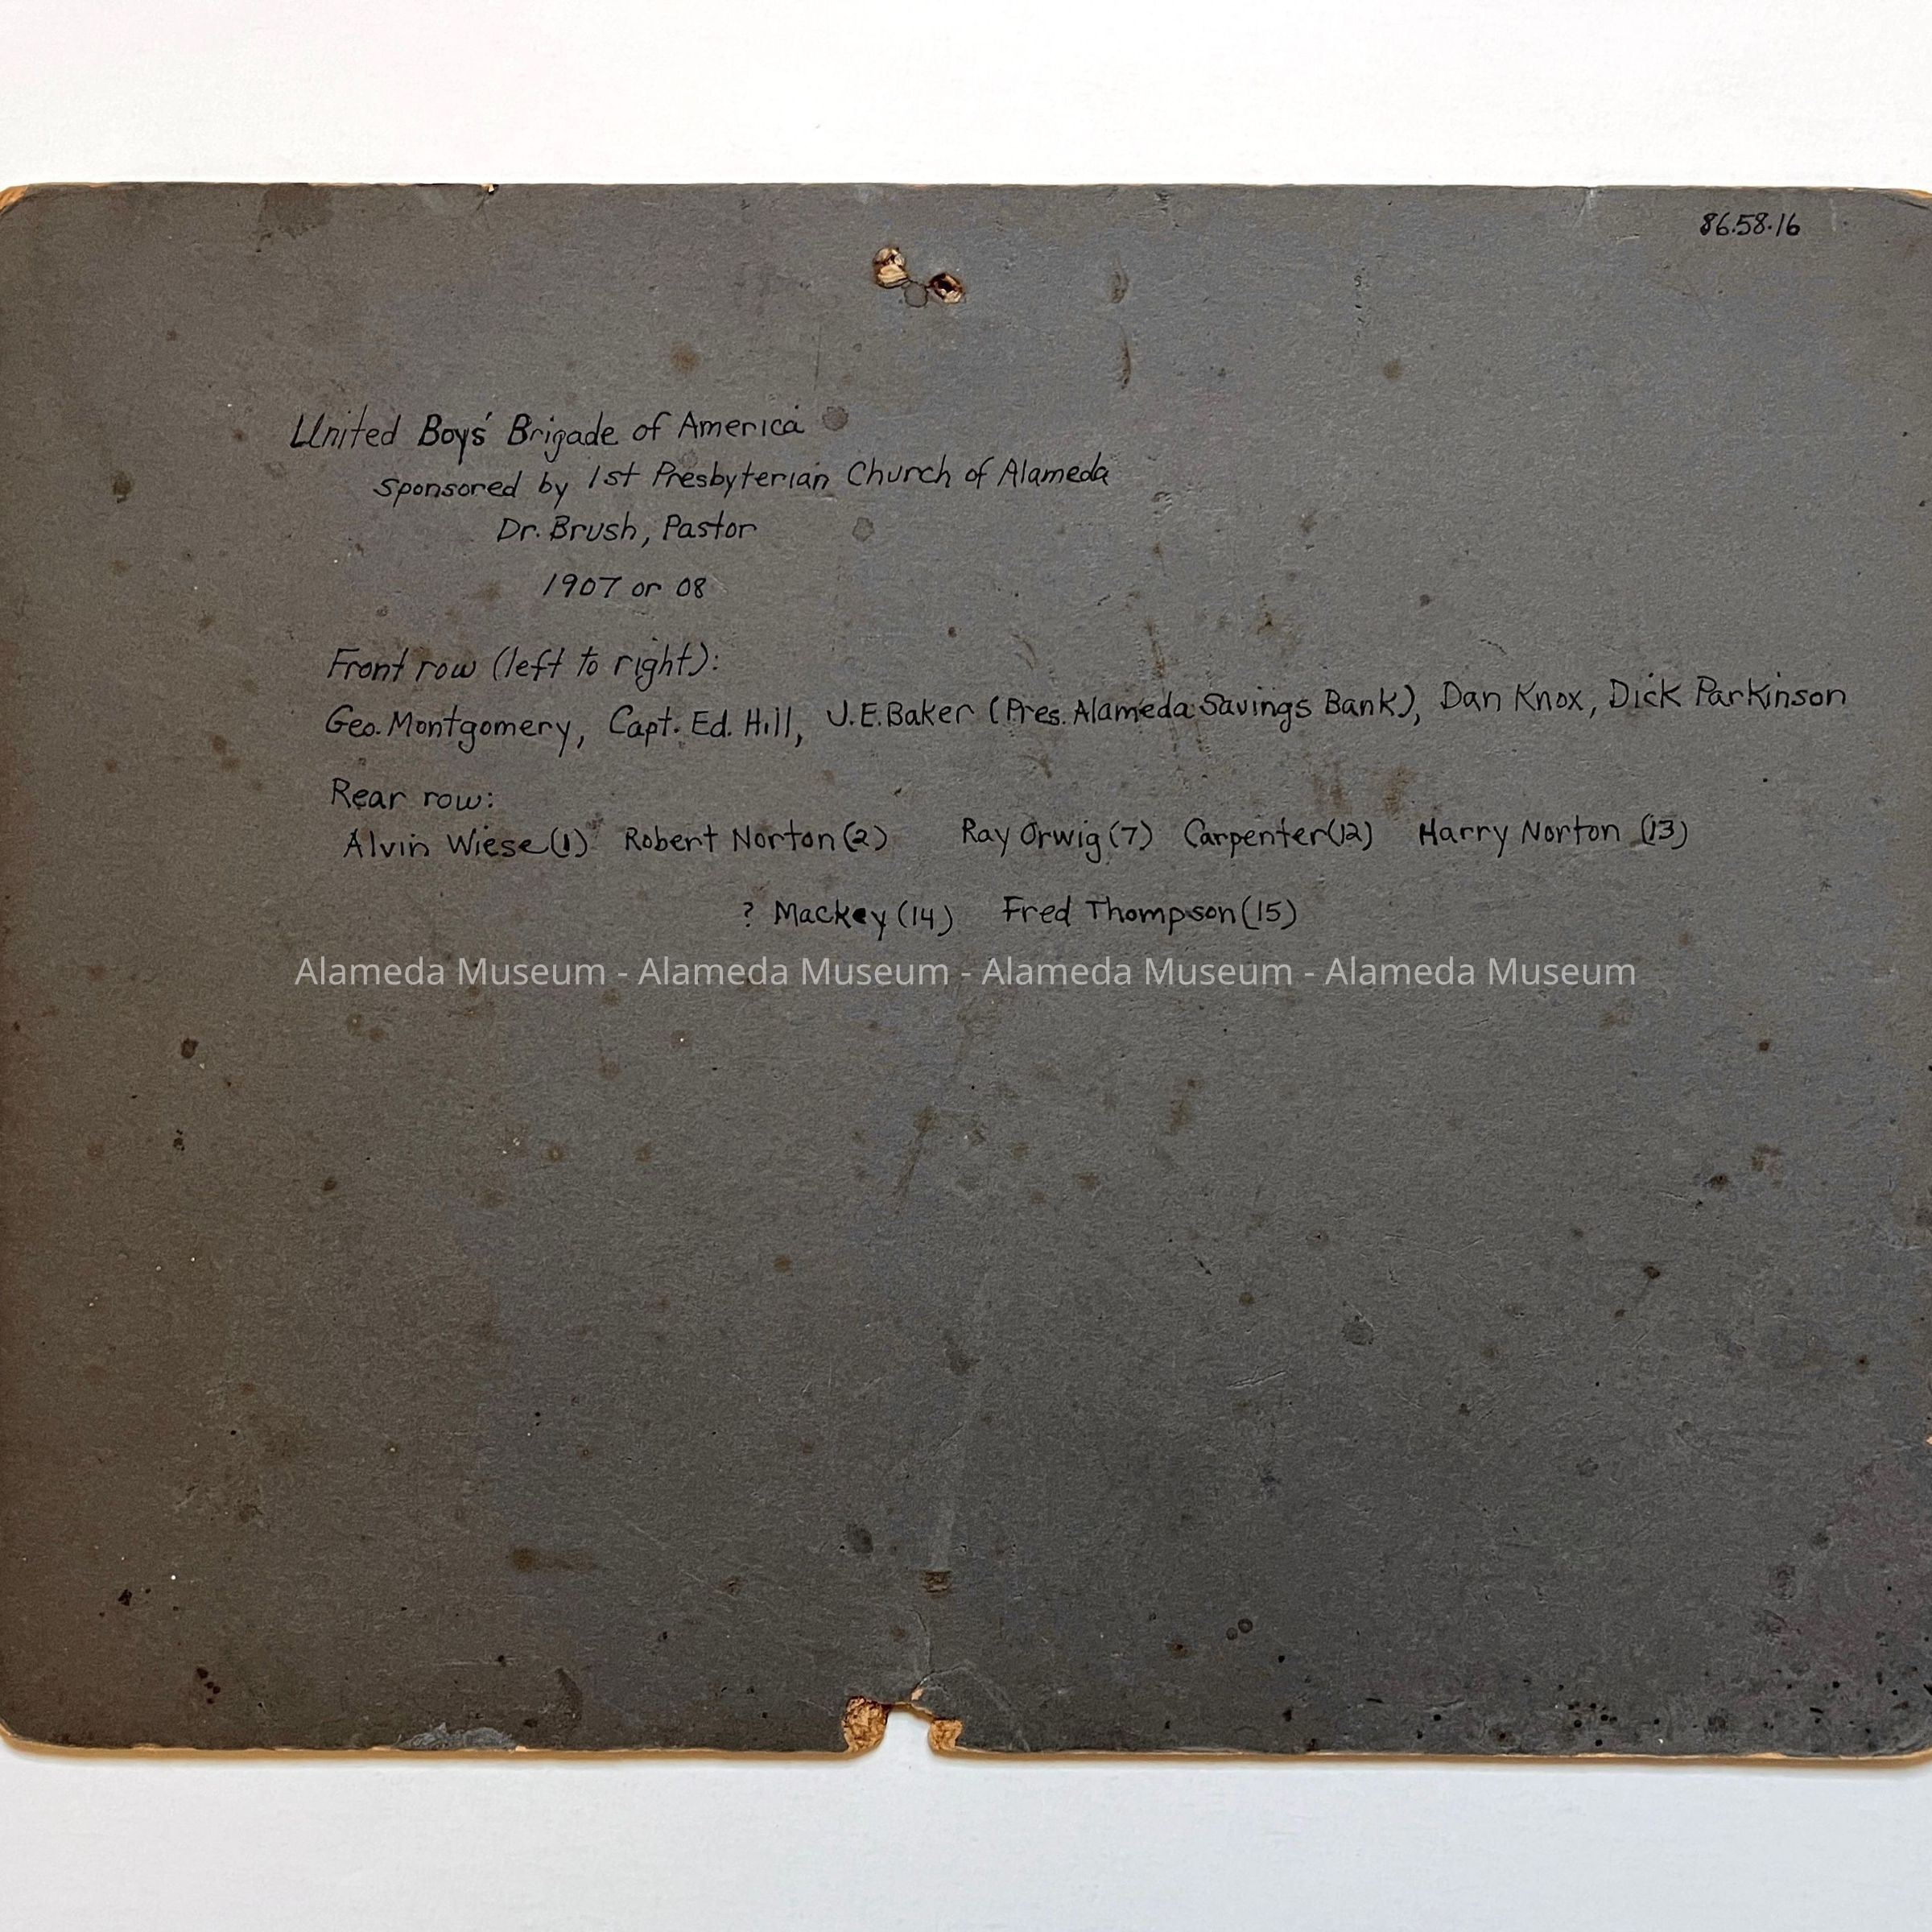 86.58.16
United Boys' Brigade of America
sponsored by 1st Presbyterian Church of Alameda
Dr. Brush, Pastor
1907 or 08
Front row (left to right):
Geo. Montgomery, Capt. Ed. Hill, J.E. Baker (Pres. Alameda Savings Bank), Dan Knox, Dick Parkinson
Rear row:
Alvin Wiese (1) Robert Norton (2) Ray Orwig (7) Carpenter (12) Harry Norton (13)
? Mackey (14) Fred Thompson (15)
Alameda Museum - Alameda Museum - Alameda Museum - Alameda Museum